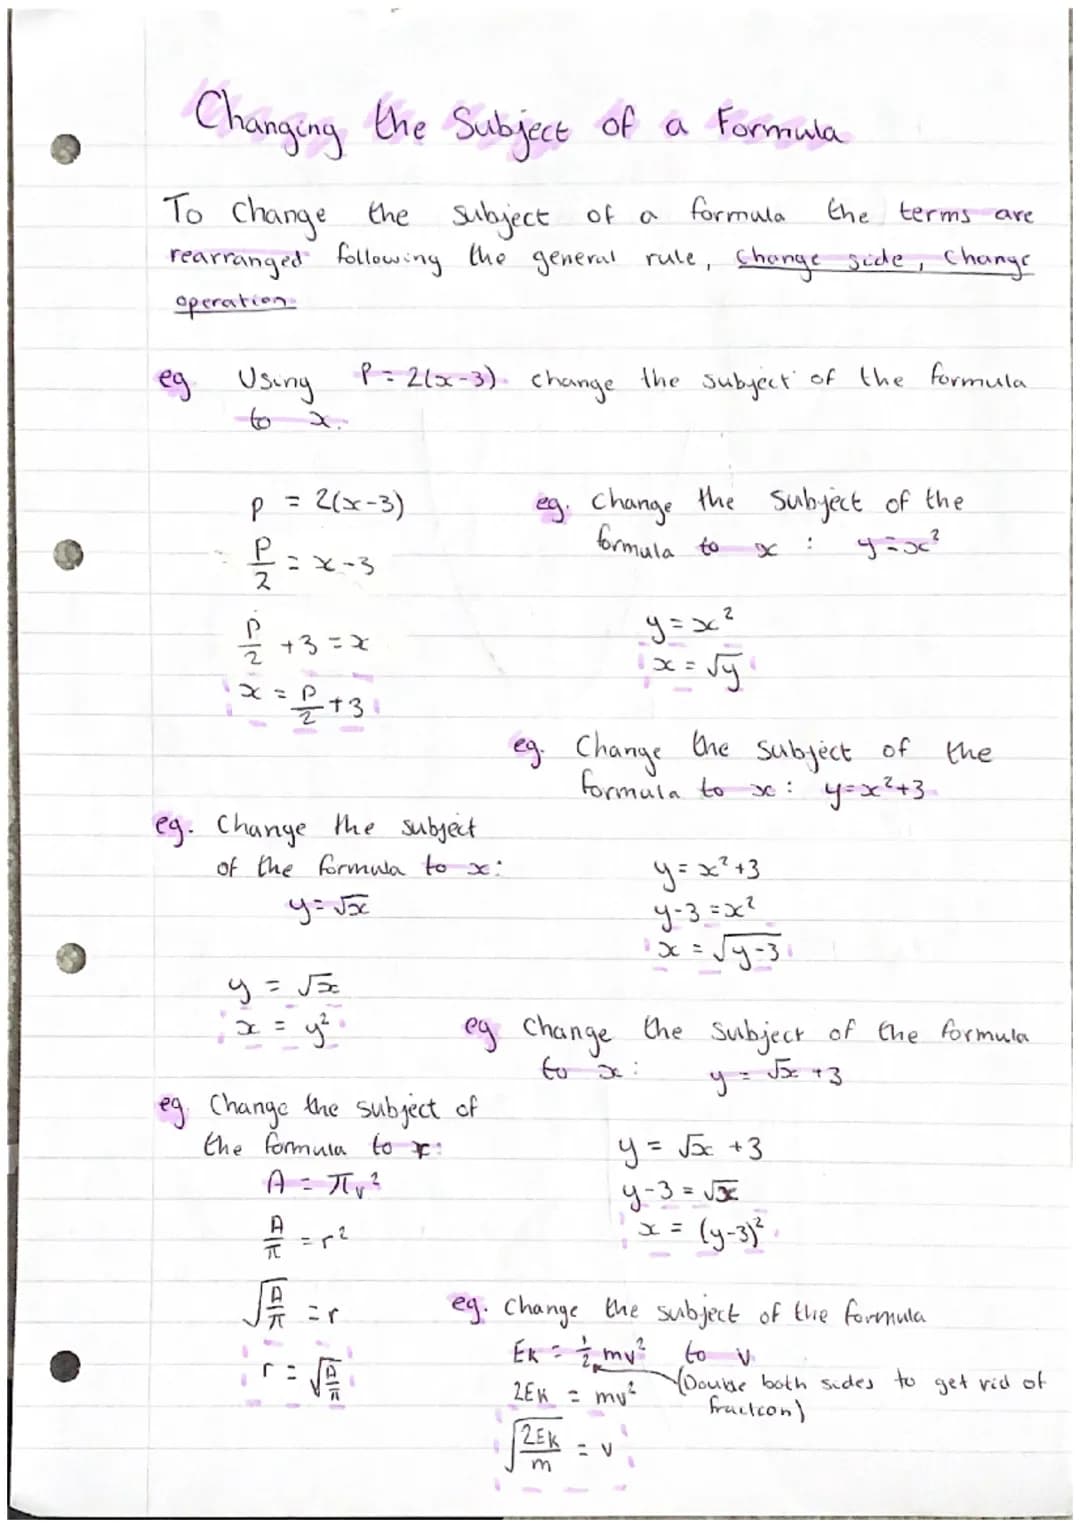 Changing the Subject of a Formula
To Change the subject of a formula the terms are
rearranged following the general rule, change side, change
operation.
eg Using P = 2(x-3) change the subject of the formula
to x.
p = 2(x-3)
P/2 = x-3
P/2 +3 = x
x = P/2 +3
eg. Change the Subject of the
formula to x : y=x²
y = x²
x = √y
eg. Change the subject of the
formula to x: y=x²+3
y = x²+3
y-3 = x²
x = √(y-3)
eg. Change the subject
of the formula to x:
y=√x
y = √x
x = y²
eg Change the Subject of the formula
to x: y = √x +3
y = √x +3
y-3 = √x
x = (y-3)²
eg. Change the subject of
the formula to r:
A = πr²
A/π = r²
√(A/π) = r
r = √(A/π)
eg. Change the subject of the formula
Ek = 1/2 mv² to v
(Double both sides to get rid of
fraction)
2Ek = mv²
√(2Ek/m) = v